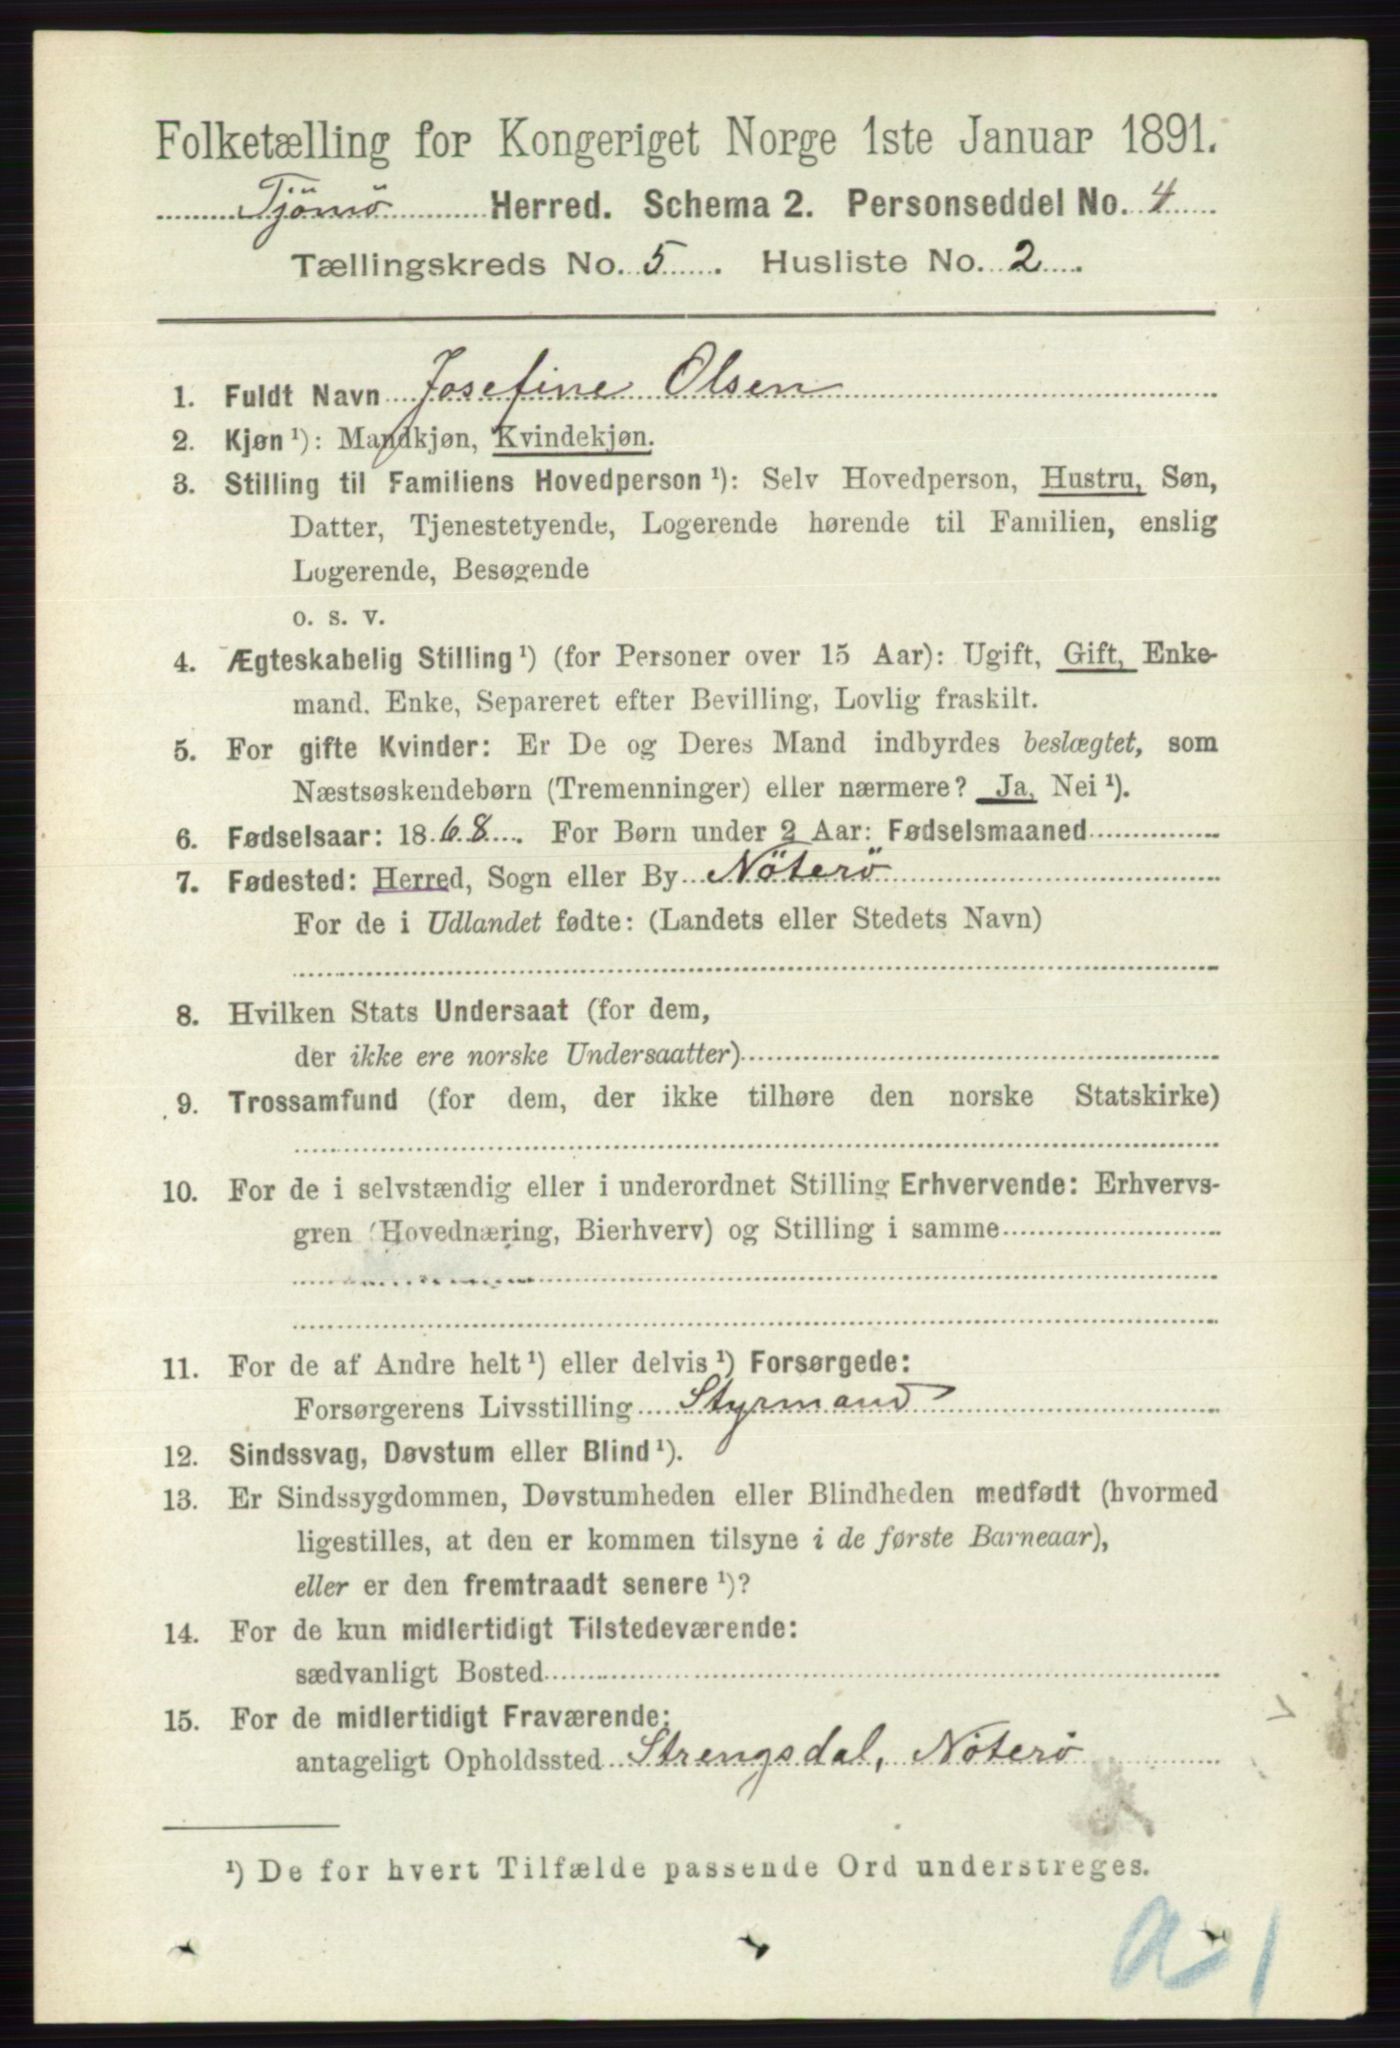 Folketælling for Kongeriget Norge 1ste Januar 1891.
Tjömö Herred. Schema 2. Personseddel No. 4
Tællingskreds No. 5. Husliste No. 2.
1. Fuldt Navn Josefine Olsen
2. Kjøn¹): Mandkjøn, Kvindekjøn.
3. Stilling til Familiens Hovedperson¹): Selv Hovedperson, Hustru, Søn,
Datter, Tjenestetyende, Logerende hørende til Familien, enslig
Logerende, Besøgende
o. s. v.
4. Ægteskabelig Stilling¹) (for Personer over 15 Aar): Ugift, Gift, Enke-
mand. Enke, Separeret efter Bevilling, Lovlig fraskilt.
5. For gifte Kvinder: Er De og Deres Mand indbyrdes beslægtet, som
Næstsøskendebørn (Tremenninger) eller nærmere? Ja, Nei¹).
6. Fødselsaar: 1868. For Børn under 2 Aar: Fødselsmaaned
7. Fødested: Herred, Sogn eller By Nöterö
For de i Udlandet fødte: (Landets eller Stedets Navn)
8. Hvilken Stats Undersaat (for dem,
der ikke ere norske Undersaatter)
9. Trossamfund (for dem, der ikke tilhøre den norske Statskirke)
10. For de i selvstændig eller i underordnet Stilling Erhvervende: Erhvervs-
gren (Hovednæring, Bierhverv) og Stilling i samme
11. For de af Andre helt¹) eller delvis¹) Forsørgede:
Forsørgerens Livsstilling Styrmand
12. Sindssvag, Døvstum eller Blind¹).
13. Er Sindssygdommen, Døvstumheden eller Blindheden medfødt (hvormed
ligestilles, at den er kommen tilsyne i de første Barneaar),
eller er den fremtraadt senere¹)?
14. For de kun midlertidigt Tilstedeværende:
sædvanligt Bosted
15. For de midlertidigt Fraværende:
antageligt Opholdssted Strengsdal, Nöterö
¹) De for hvert Tilfælde passende Ord understreges.
a 1